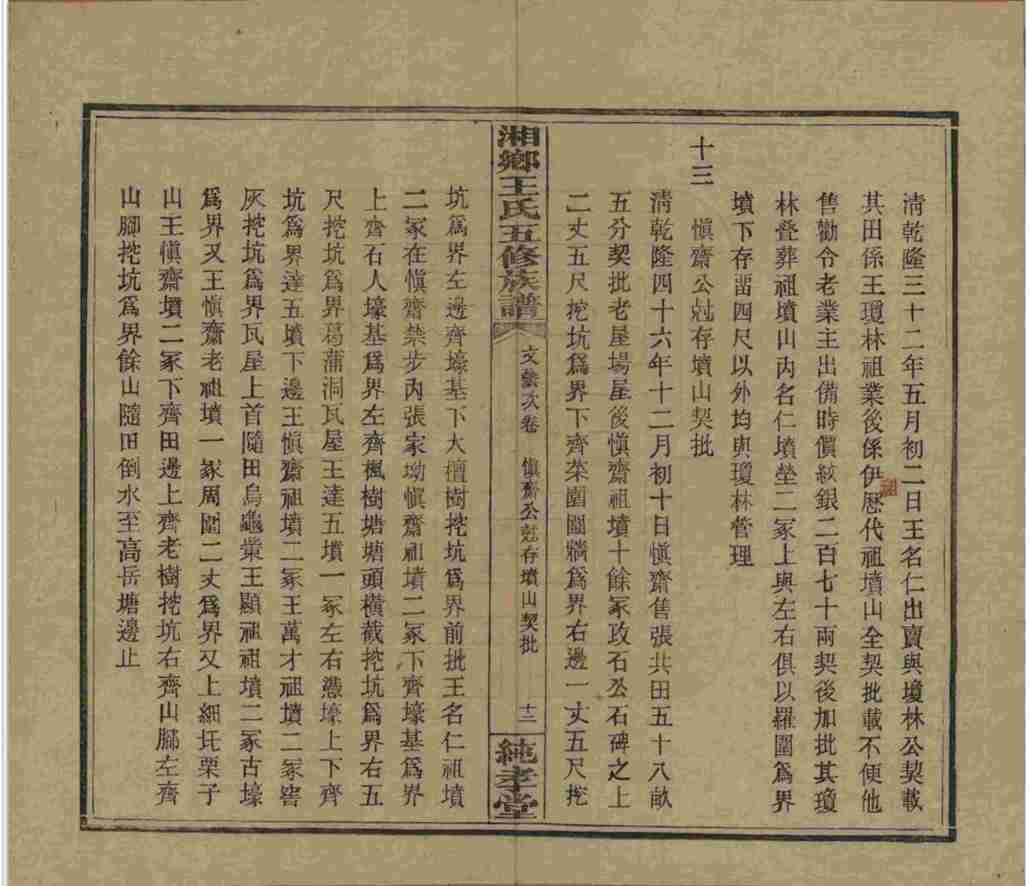 清乾隆三十二年五月初二日王名仁出賣與瓊林公契載
其田係王瓊林祖業後係伊歷代祖墳山全契批載不便他
售勸令老業主出備時價紋銀二百七十兩契後加批其瓊
林叠葬祖墳山內名仁墳塋二冢上與左右俱以羅圍爲界
墳下存留四尺以外均與瓊林管理
十三
愼齋公尅存墳山契批
淸乾隆四十六年十二月初十日愼齋售張共田五十八畝
五分契批老屋場屋後愼齋祖墳十餘冢政石公石碑之上
二丈五尺挖坑爲界下齊菜園圍牆爲界右邊一丈五尺挖
湘鄉王氏五修族譜
文藝次卷
愼齋公尅存墳山契批
十三
純孝堂
坑爲界左邊齊壕基下大檀樹挖坑爲界前批王名仁祖墳
二冢在愼齋禁步內張家坳愼齋祖墳二冢下齊壕基爲界
上齊石人壕基爲界左齊楓樹塘塘頭橫截挖坑爲界右五
尺挖坑爲界葛蒲洞瓦屋王達五墳一冢左右憑壕上下齊
坑爲界達五墳下邊王愼齋祖墳二冢王萬才祖墳二冢窖
灰挖坑爲界瓦屋上首隨田烏龜業王顯祖祖墳二冢古壕
爲界又王愼齋老祖墳一冢周圍二丈爲界又上細圫栗子
山王愼齋墳二冢下齊田邊上齊老樹挖坑右齊山腳左齊
山腳挖坑爲界餘山隨田倒水至高岳塘邊止